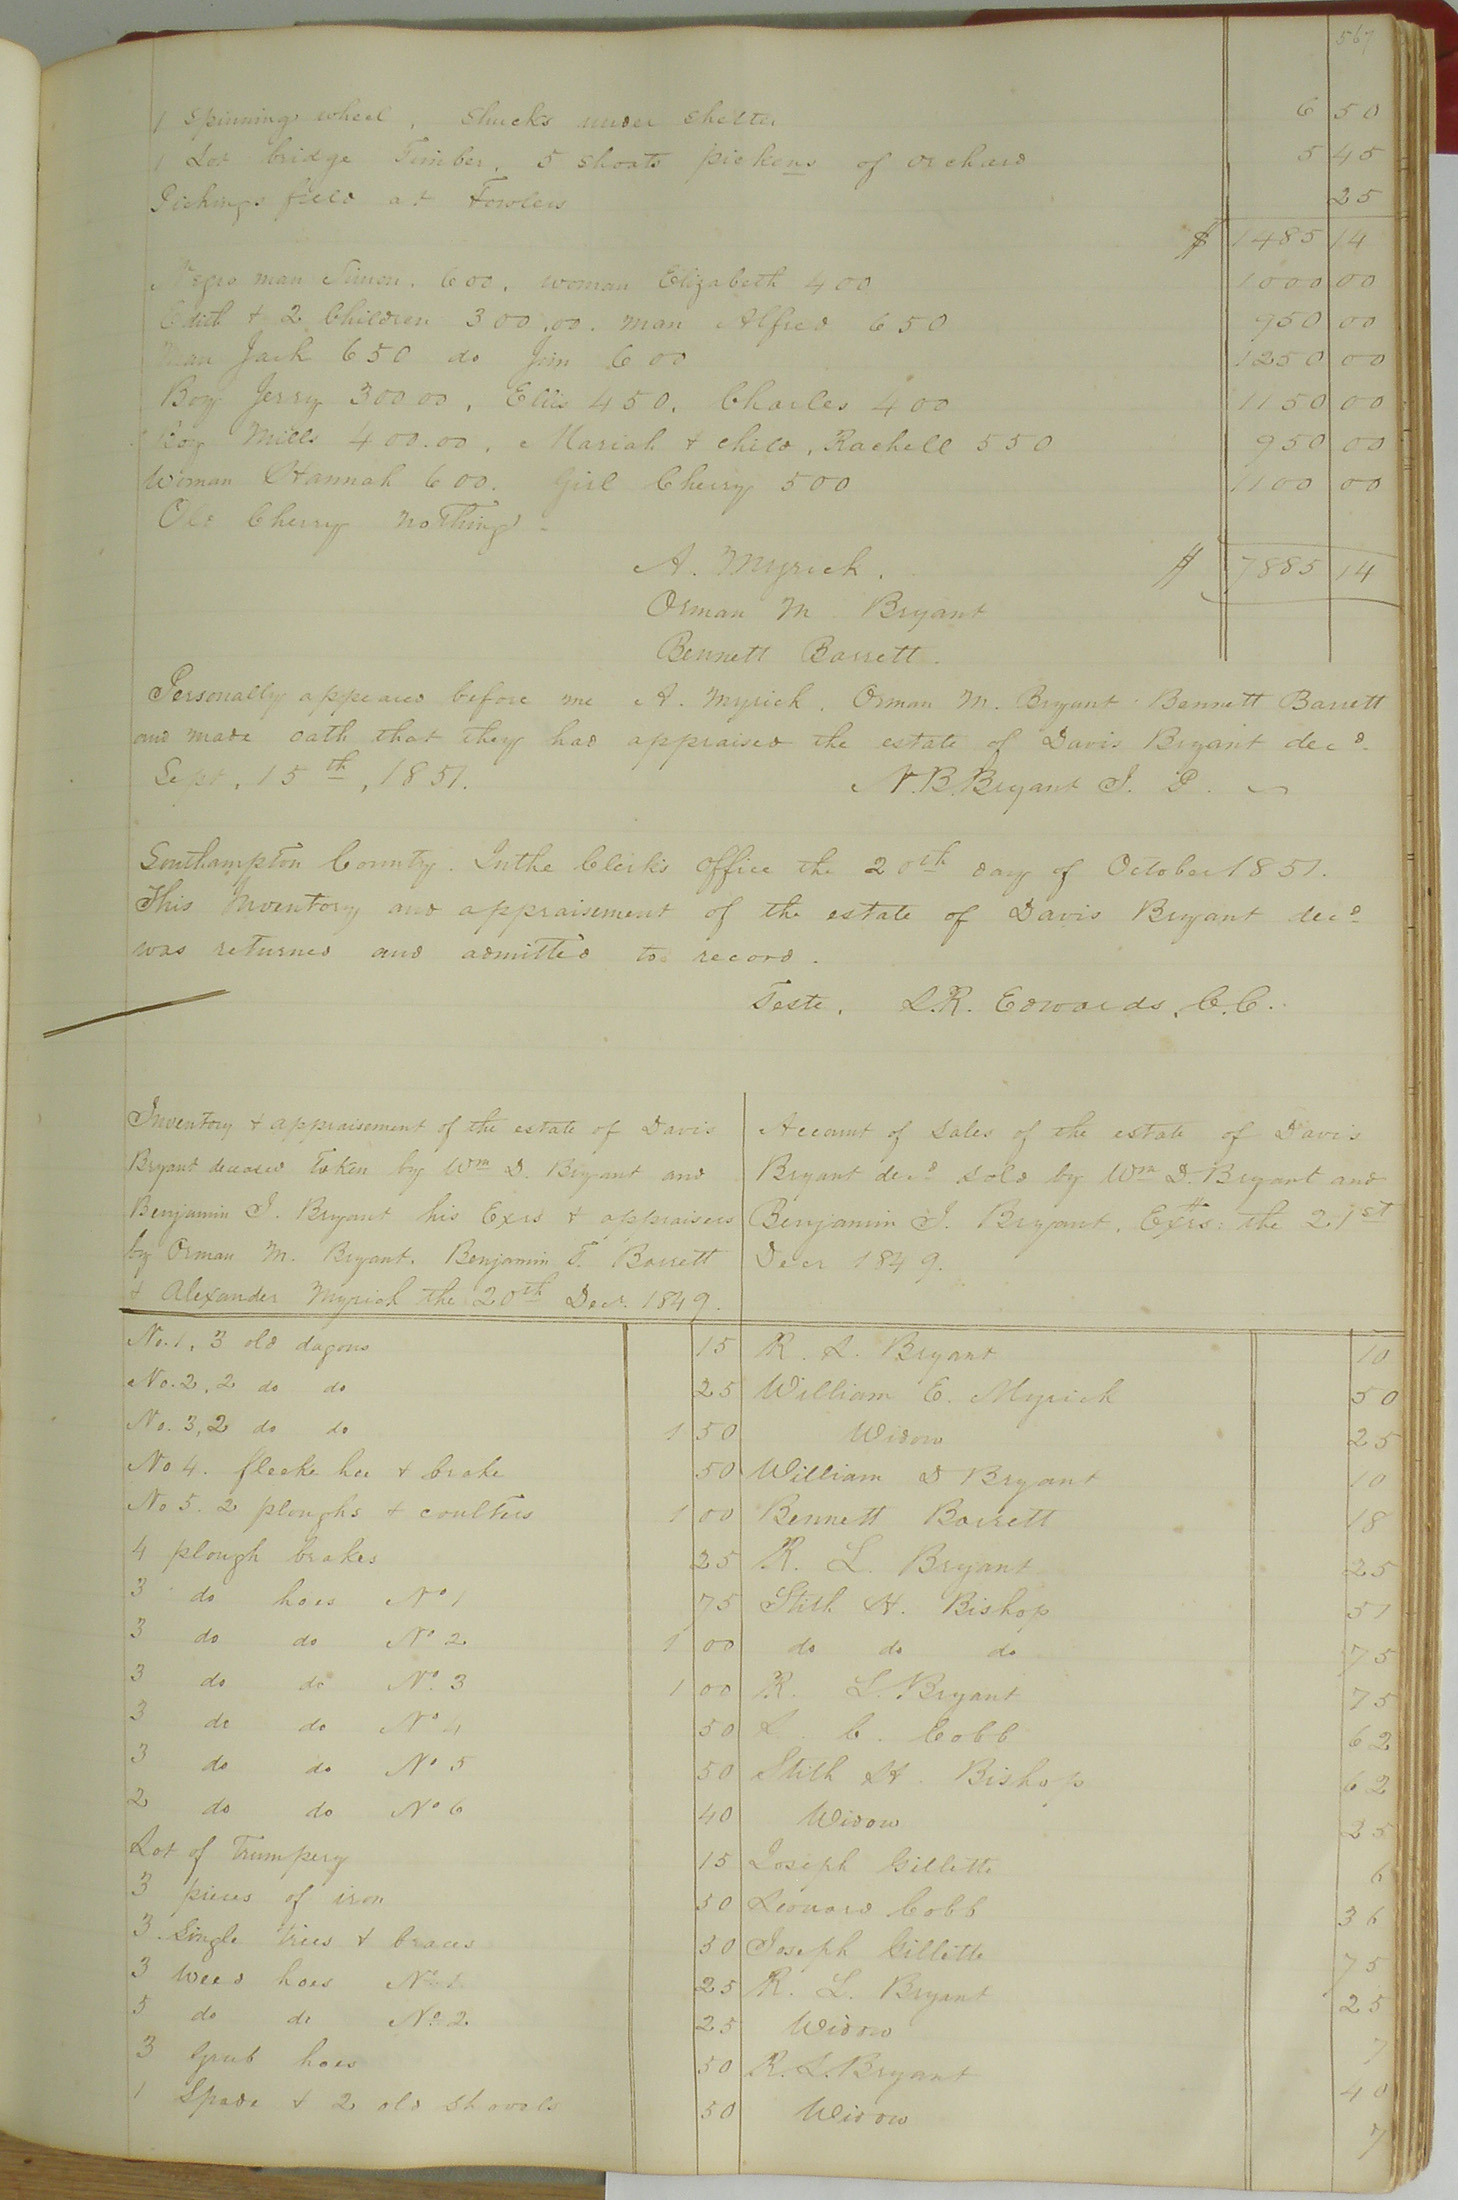 567
1 Spinning wheel, Shucks under Shelter 6 50
1 Lot bridge Timber, 5 Shoats pickens of orchard 5 45
Pickings field at Fowlers 25
$ 1485 14
Negro man Simon, 600, woman Elizabeth 400 1000 00
Edith & 2 Children 300,00. man Alfred 650 950 00
Man Jack 650 do Jim 600 1250 00
Boy Jerry 300 00, Ellis 450, Charles 400 1150 00
Boy Mills 400.00, Mariah & child, Rachell 550 950 00
Woman Hannah 600. Girl Cherry 500 1100 00
Old Cherry nothing -
A. Myrick. $ 7885 14
Orman M Bryant
Bennett Barrett.
Personally appeared before me A. Myrick. Orman M. Bryant Bennett Barrett
and made oath that they had appraised the estate of Davis Bryant decd.
Sept, 15th, 1851. N.B. Bryant J. P.
Southampton County. In the Clerk's Office the 20th day of October 1851.
This Inventory and appraisement of the estate of Davis Bryant decd
was returned and admitted to record.
Teste, L.R. Edwards, C.C.
Inventory & appraisement of the estate of Davis
Bryant deceased Taken by Wm D. Bryant and
Benjamin J. Bryant his Exrs & appraisers
by Orman M. Bryant. Benjamin T. Barrett
& Alexander Myrick the 20th Decr. 1849.
Account of Sales of the estate of Davis
Bryant decd Sold by Wm D. Bryant and
Benjamin J. Bryant, Exrs: the 21st
Decr 1849.
No. 1, 3 old dagons 15 R. L. Bryant 10
No. 2, 2 do do 25 William E. Myrick 50
No. 3, 2 do do 1 50 Widow 25
No 4. fleeke hoe & brake 50 William D Bryant 10
No 5. 2 ploughs & coulters 1 00 Bennett Barrett 18
4 plough brakes 25 R. L. Bryant 25
3 do hoes No 1 75 Stith H. Bishop 51
3 do do No 2 1 00 do do do 75
3 do do No. 3 1 00 R. L. Bryant 75
3 do do No 4 50 L. C. Cobb 62
3 do do No 5 50 Stith H. Bishop 62
2 do do No 6 40 Widow 25
Lot of Trumpery 15 Joseph Gillette 6
3 pieces of iron 50 Leonard Cobb 36
3 Single Trees & braces 50 Joseph Gillette 75
3 Weed hoes No 1 25 R. L. Bryant 25
5 do do No. 2 25 Widow 7
3 Grub hoes 50 R. L. Bryant 40
1 Spade & 2 old shovels 50 Widow 7